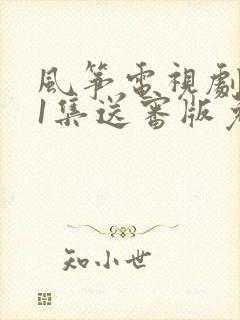 風箏電視劇
1集送審版免
知小世